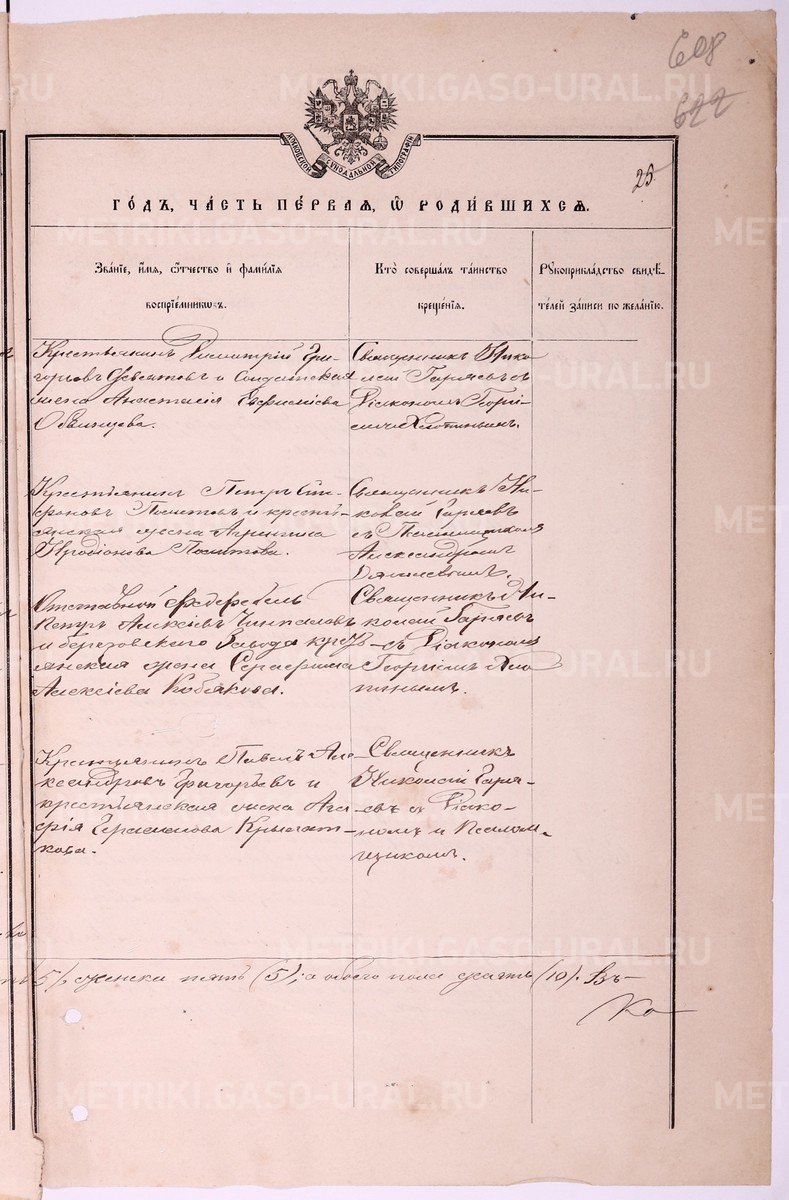 608
622
МОСКОВСКОЙ СѴНОДАЛЬНОЙ ТИПОГРАФІИ
25
ГО́ДЪ, ЧА́СТЬ ПЕ́РВАѦ, Ѡ҆ РОДИ́ВШИХСѦ.
Зва́нїе, и҆́мѧ, ѻ҆́тчество и҆ фами́лїѧ
воспрїе́мникѡвъ.
Кто̀ соверша́лъ та́инство
креще́нїѧ.
Рꙋкоприкла́дство свидѣ́-
телей за́писи по жела́нїю.
Крестьянинъ Димитрій Гри-
горьевъ и Солдатская
жена Анастасія Евфиміева
Обвинцева.
Священникъ Нико-
лай Горяевъ съ
Діакономъ Георгі-
емъ Хлопинымъ.
Крестьянинъ Петръ
и крестья-
янская жена Агрипина
Иродіонова
Священникъ Ни-
колай Горяевъ
съ Псаломщикомъ
Александромъ
Отставной Фельдфебель
Петръ Алексіевъ
и Березовскаго Завода крестья-
янская жена Серафима
Алексіева Кобякова.
Священникъ Ни-
колай Горяевъ
съ Діакономъ
Георгіемъ Хло-
пинымъ.
Крестьянинъ Павелъ Але-
ксандровъ Григорьевъ и
крестьянская жена
Герасимова
кова.
Священникъ
Николай Горя-
евъ съ Діако-
номъ и Псалом-
щикомъ.
5), женска пять (5), а обоего пола десять (10). Въ
Ко
METRIKI.GASO-URAL.RU